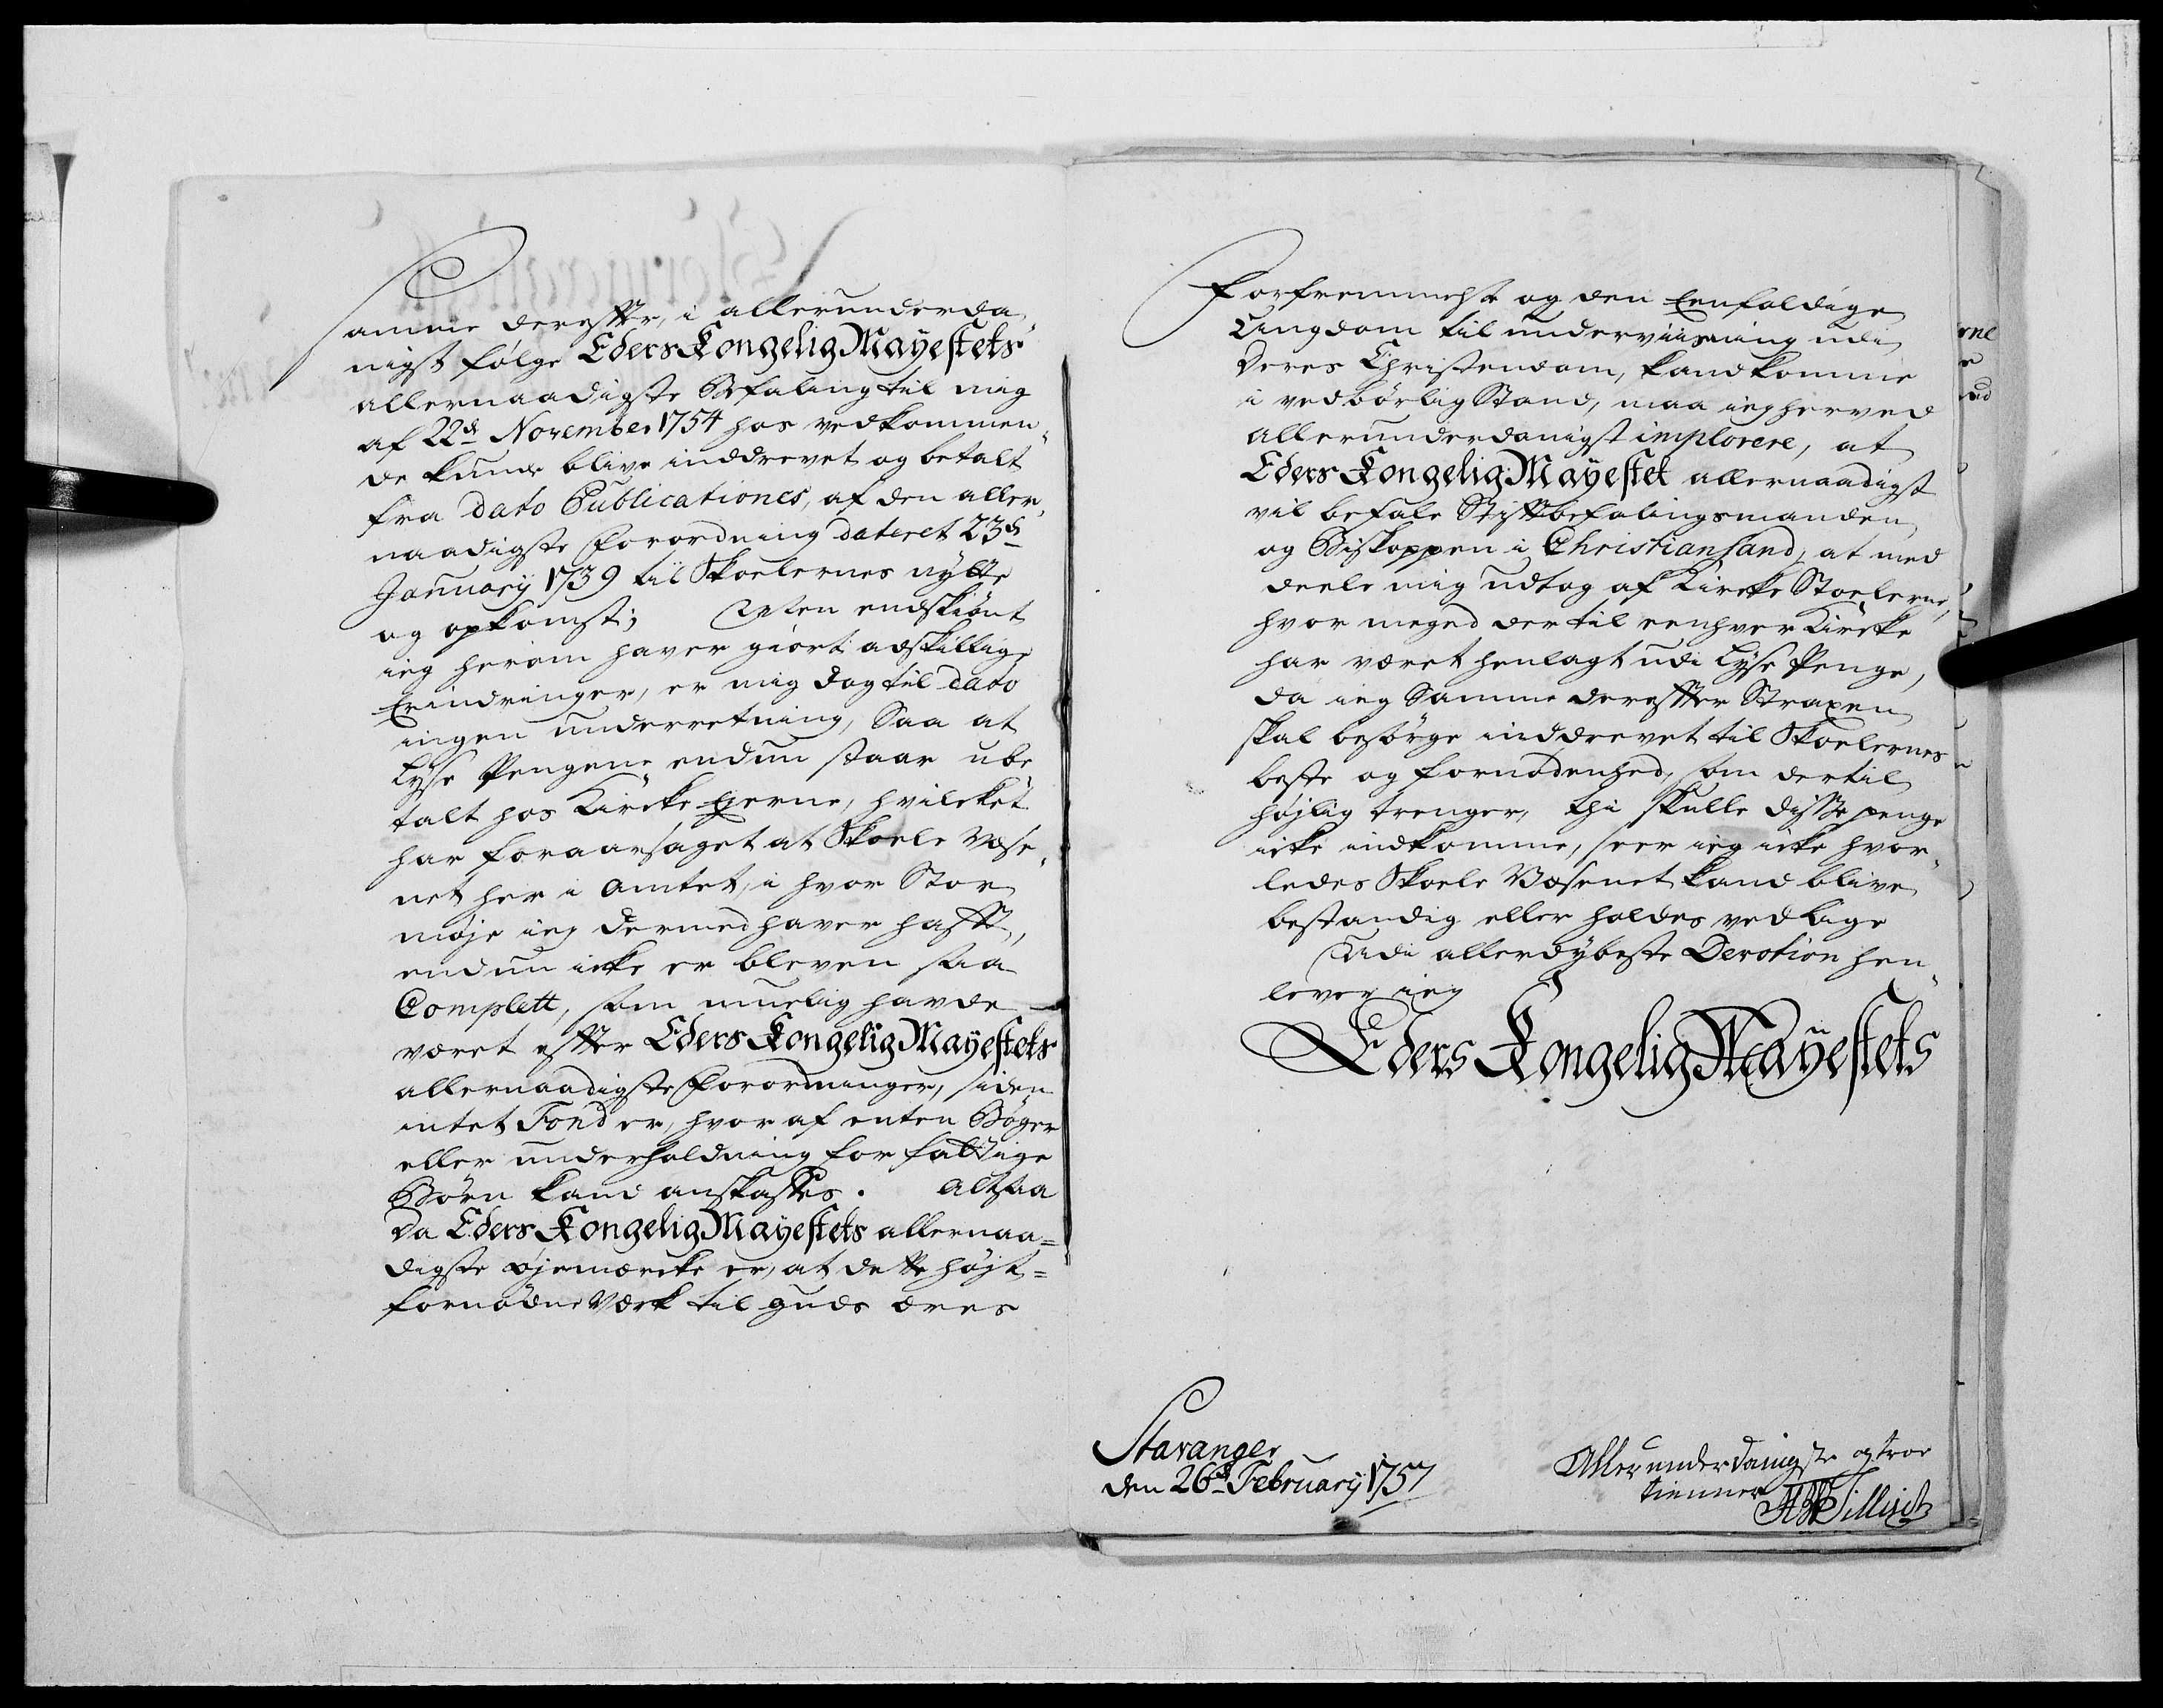 Samme derefter, i allerunderda-
nigst følge Eders Kongelig Mayestets
allernaadigste Befaling til mig
af 22de November 1754 hos vedkommen-
de kunde blive inddrevet og betalt
fra dato Publicationes, af den aller-
naadigste Forordning dateret 23de
January 1739 til Skoelernes nytte
og opkomst; Men endskiønt
ieg herom haver giort adskillige
Erindringer, er mig dog til dato
ingen underretning, Saa at
Lyse Pengene endnu staar ube-
talt hos Kirke Eyerne, hvilcket
har foraarsaget at Skoele Væse-
net her i Amtet, i hvor Stor
møje ieg dermed haver hafft,
endnu icke er bleven saa
Complett, som muelig havde
været efter Eders Kongelig Mayestets
allernaadigste Forordninger, siden
intet Fond er, hvor af enten Bøger
eller underholdning for fattige
Børn kand anskaffes. Altsaa
da Eders Kongelig Mayestets allernaa=
digste øjemærcke er, at dette højt=
fornødne Værk til guds æres
Forfremmelse og den Eenfoldige
Ungdom til underviisning udi
deres Christendom, kand komme
i vedbørlig Stand, maa ieg herved
allerunderdanigst implorere, at
Eders Kongelig Mayestet allernaadigst
vil befale Stiftbefalingsmanden
og Biskoppen i Christiansand, at med
deele mig udtog af Kircke Stoelerne,
hvor meged der til eenhver Kircke
har været henlagt udi Lyse Penge,
da ieg Samme derefter Straxen
skal besørge inddrevet til Skoelernes
beste og fornødenhed, som dertil
højlig trenger, thi skulle disse penge
icke indkomme, seer ieg icke hvor-
ledes Skoele Væsenet kand blive
bestandig eller holdes ved lige
Udi allerdybeste Devotion hen-
lever ieg
Eders Kongelig Mayestets
Stavanger
den 26de February 1757
Allerunderdanigste og troe
tienner
Tillisch